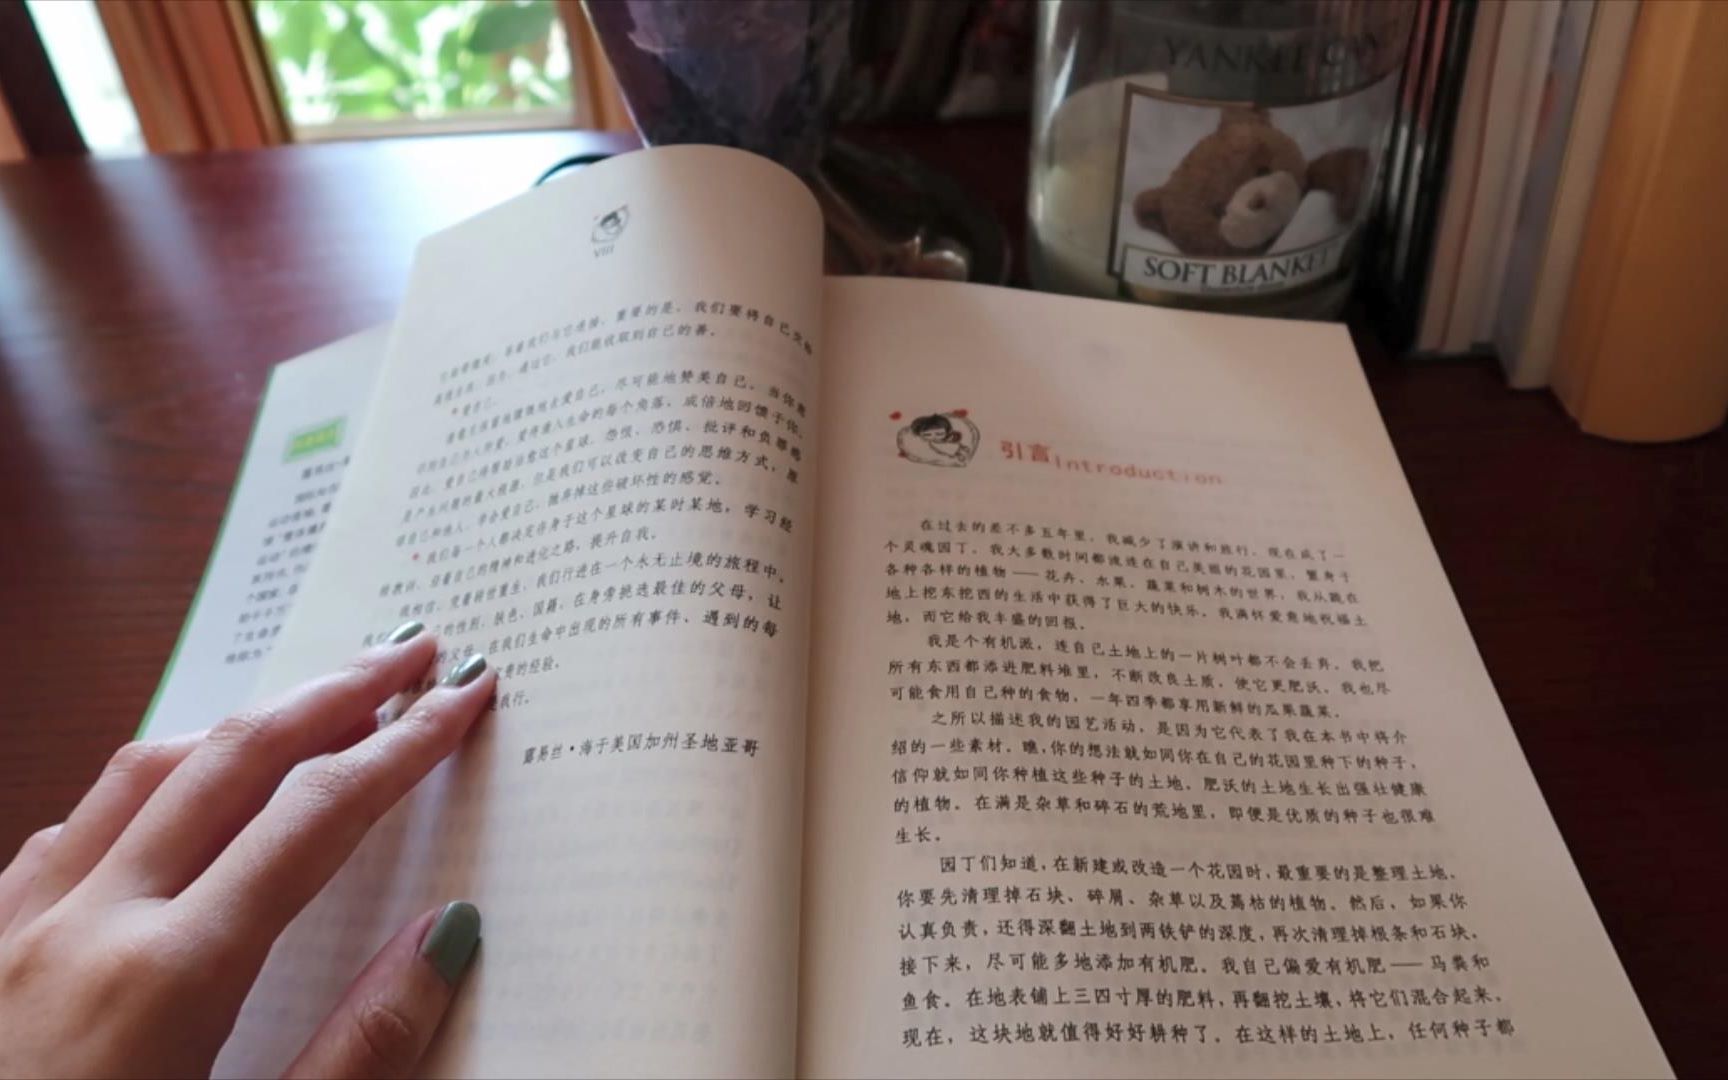 YANKEE CAN
SOFT BLANKET
VIII
重要的是，我们要将自己交给
因为，通过它，我们能收取到自己的善。
爱自己。
地去爱自己，尽可能地赞美自己。当你意
爱将涌入生命的每个角落，成倍地回馈于你。
因此，爱自己将帮助治愈这个星球。怨恨、恐惧、批评和负罪感
是产生问题的最大根源，但是我们可以改变自己的思维方式，原
谅自己和他人，学会爱自己，抛弃掉这些破坏性的感觉。
我们每一个人都决定存身于这个星球的某时某地，学习经
验教训，沿着自己的精神和进化之路，提升自我。
我相信，凭着转世重生，我们行进在一个永无止境的旅程中。
的性别、肤色、国籍，在身旁挑选最佳的父母，让
的父母。在我们生命中出现的所有事件、遇到的每
宝贵的经验。
我行。
露易丝·海于美国加州圣地亚哥
引言Introduction
在过去的差不多五年里，我减少了演讲和旅行，现在成了一
个灵魂园丁。我大多数时间都流连在自己美丽的花园里，置身于
各种各样的植物——花卉、水果、蔬菜和树木的世界，我从跪在
地上挖东挖西的生活中获得了巨大的快乐。我满怀爱意地祝福土
地，而它给我丰盛的回报。
我是个有机派，连自己土地上的一片树叶都不会丢弃。我把
所有东西都添进肥料堆里，不断改良土质，使它更肥沃。我也尽
可能食用自己种的食物，一年四季都享用新鲜的瓜果蔬菜。
之所以描述我的园艺活动，是因为它代表了我在本书中将介
绍的一些素材。瞧，你的想法就如同你在自己的花园里种下的种子，
信仰就如同你种植这些种子的土地。肥沃的土地生长出强壮健康
的植物。在满是杂草和碎石的荒地里，即便是优质的种子也很难
生长。
园丁们知道，在新建或改造一个花园时，最重要的是整理土地。
你要先清理掉石块、碎屑、杂草以及蔫枯的植物。然后，如果你
认真负责，还得深翻土地到两铁铲的深度，再次清理掉根条和石块。
接下来，尽可能多地添加有机肥。我自己偏爱有机肥——马粪和
鱼食。在地表铺上三四寸厚的肥料，再翻挖土壤，将它们混合起来。
现在，这块地就值得好好耕种了。在这样的土地上，任何种子都